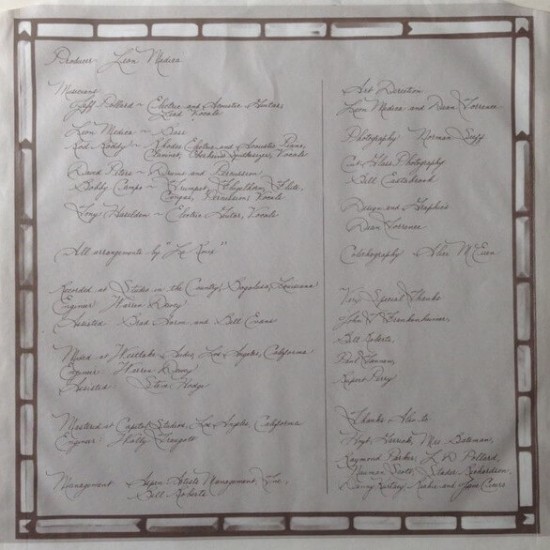 Producer - Leon Medica
Musicians
Jeff Pollard ~ Electric and Acoustic Guitars,
Lead Vocals
Leon Medica ~ Bass
Rod Roddy ~ Rhodes Electric and Acoustic Piano,
Clavinet, Synthesizer, Vocals
David Peters ~ Drums and Percussion
Bobby Campo ~ Trumpet, Flugelhorn, Flute,
Congas, Percussion, Vocals
Tony Haselden ~ Electric Guitar, Vocals
All arrangements by "Le Roux"
Recorded at Studio in the Country, Bogalusa, Louisiana
Engineer Warren Dewey
Assisted and Bill Evans
Mixed at Westlake Audio, Los Angeles, California
Engineer Warren Dewey
Assisted Steve Hodge
Mastered at Capitol Studios, Los Angeles, California
Engineer Wally Traugott
Management Aspen Artists Management, Inc.,
Bill Roberts
Art Direction
Leon Medica and Dean Torrence
Photography Norman Seeff
Cut Glass Photography
Bill
Design and Graphics
Dean Torrence
Calligraphy
Very Special Thanks
John
Bill Roberts,
Paul
Rupert Perry
Thanks Also to
Hoyt Mrs. Bateman,
Raymond Parker, L. D. Pollard,
Norman Scott, Richardson,
and